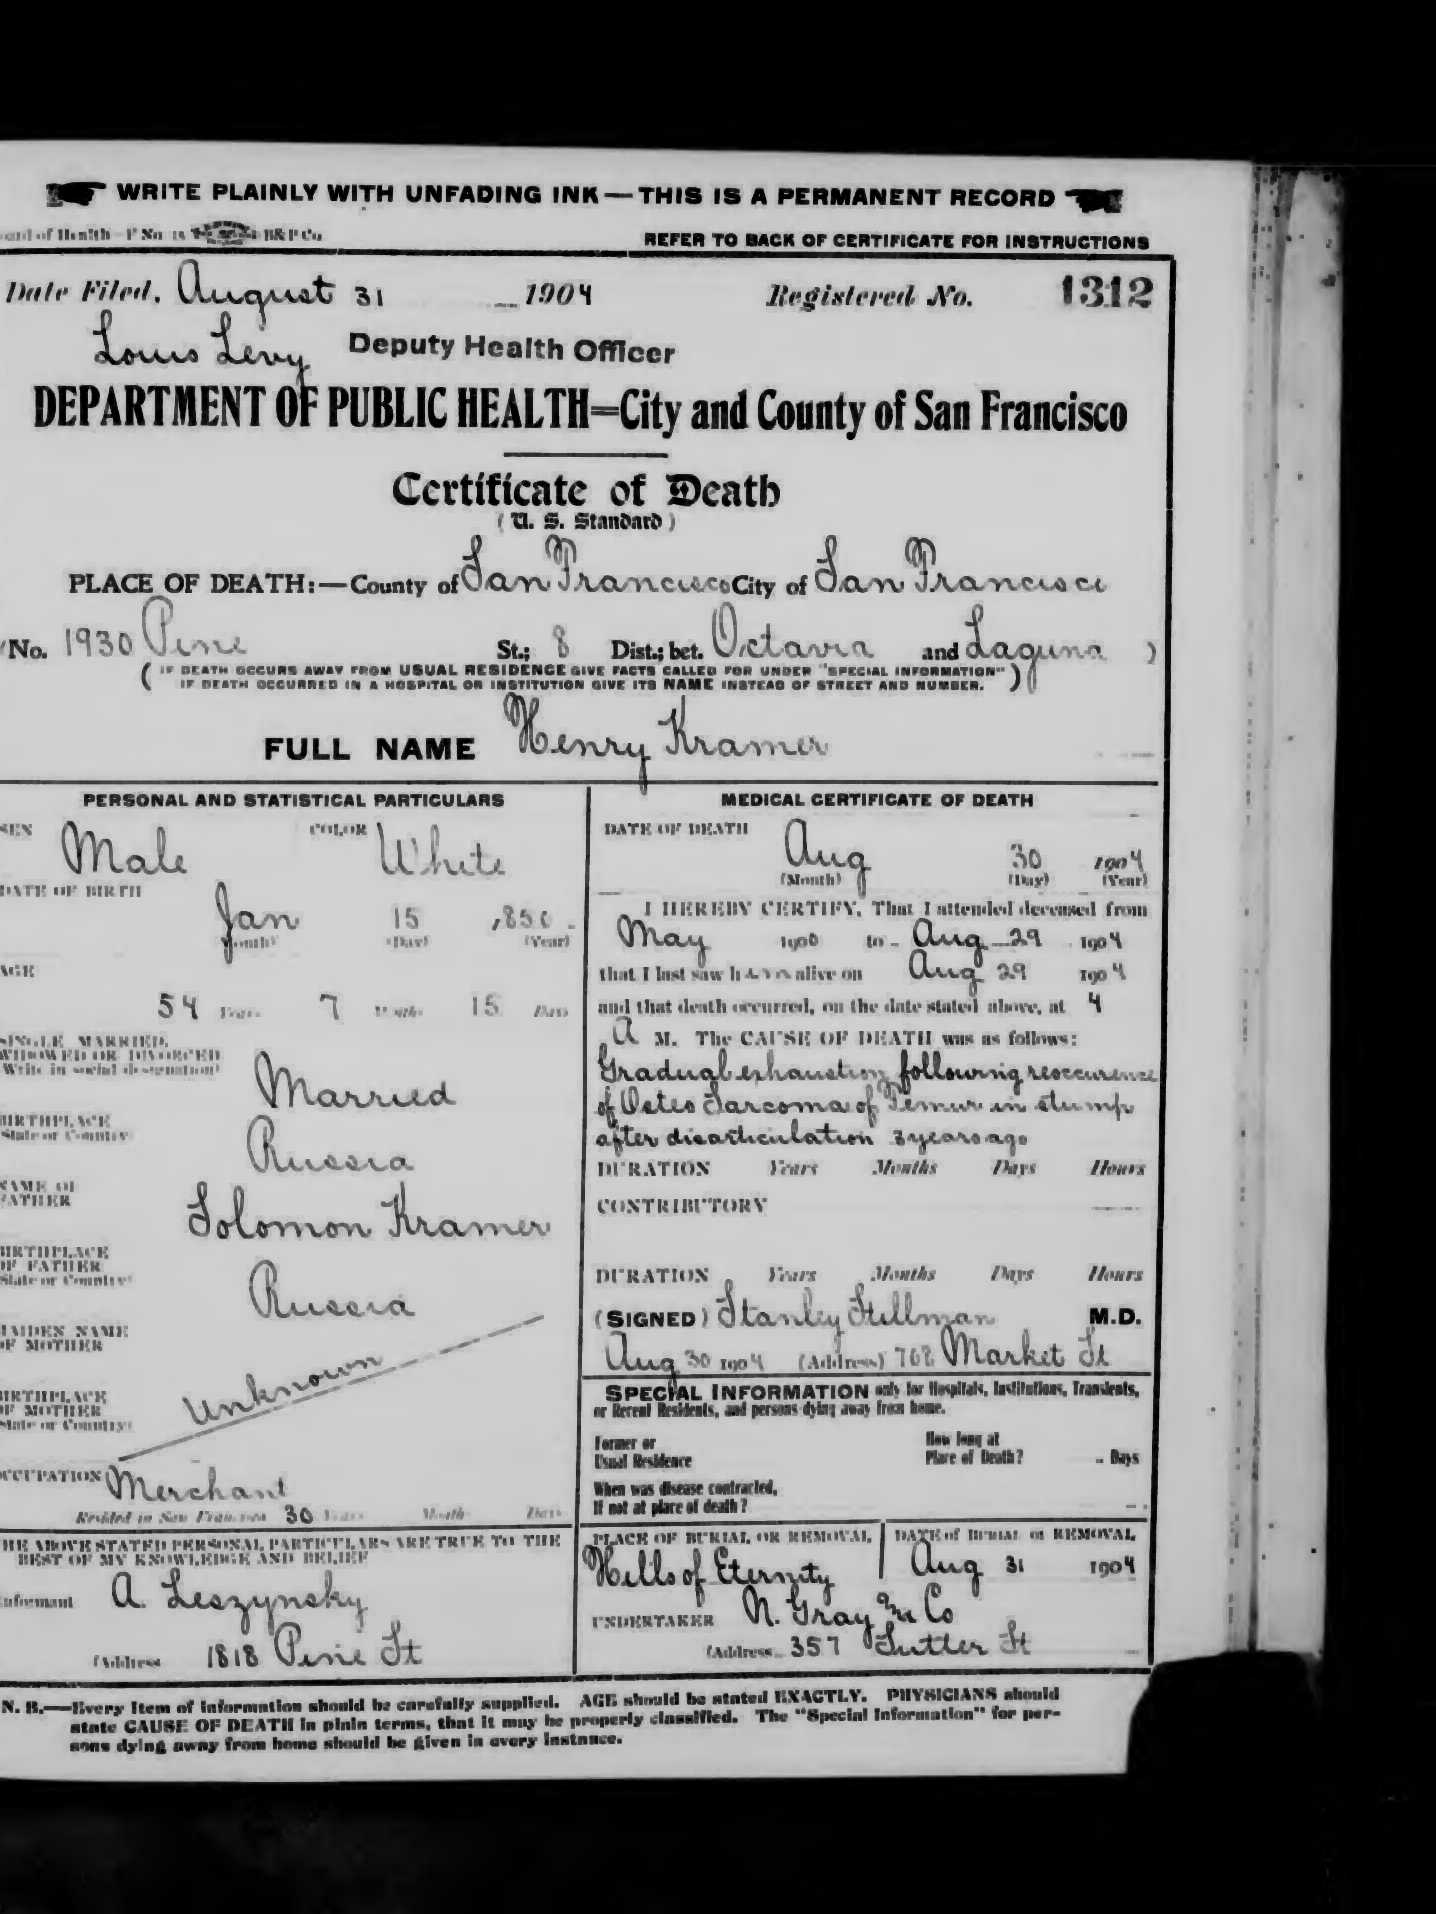 WRITE PLAINLY WITH UNFADING INK — THIS IS A PERMANENT RECORD
of Health F No 15 B&P Co
REFER TO BACK OF CERTIFICATE FOR INSTRUCTIONS
Date Filed, August 31 1904 Registered No. 1312
Louis Levy Deputy Health Officer
DEPARTMENT OF PUBLIC HEALTH=City and County of San Francisco
Certificate of Death
(U. S. Standard)
PLACE OF DEATH:—County of San Francisco City of San Francisco
(No. 1930 Pine St.; 8 Dist.; bet. Octavia and Laguna )
(IF DEATH OCCURS AWAY FROM USUAL RESIDENCE GIVE FACTS CALLED FOR UNDER "SPECIAL INFORMATION"
IF DEATH OCCURRED IN A HOSPITAL OR INSTITUTION GIVE ITS NAME INSTEAD OF STREET AND NUMBER.)
FULL NAME Henry Kramer
PERSONAL AND STATISTICAL PARTICULARS
SEX Male COLOR White
DATE OF BIRTH
Jan 15 1850
(Month) (Day) (Year)
AGE
54 Years 7 Months 15 Days
SINGLE, MARRIED,
WIDOWED OR DIVORCED
(Write in social designation)
Married
BIRTHPLACE
(State or Country)
Russia
NAME OF
FATHER
Solomon Kramer
BIRTHPLACE
OF FATHER
(State or Country)
Russia
MAIDEN NAME
OF MOTHER
Unknown
BIRTHPLACE
OF MOTHER
(State or Country)
OCCUPATION Merchant
Resided in San Francisco 30 Years Months Days
THE ABOVE STATED PERSONAL PARTICULARS ARE TRUE TO THE
BEST OF MY KNOWLEDGE AND BELIEF
Informant A. Leszynsky
(Address 1818 Pine St
MEDICAL CERTIFICATE OF DEATH
DATE OF DEATH
Aug 30 1904
(Month) (Day) (Year)
I HEREBY CERTIFY, That I attended deceased from
May 1900 to Aug 29 1904
that I last saw him alive on Aug 29 1904
and that death occurred, on the date stated above, at 4
A M. The CAUSE OF DEATH was as follows:
Gradual exhaustion following reoccurence
of Osteo Sarcoma of Femur in stump
after disarticulation 3 years ago
DURATION Years Months Days Hours
CONTRIBUTORY
DURATION Years Months Days Hours
(SIGNED) Stanley Stillman M.D.
Aug 30 1904 (Address) 768 Market St
SPECIAL INFORMATION only for Hospitals, Institutions, Transients,
or Recent Residents, and persons dying away from home.
Former or
Usual Residence
How long at
Place of Death? Days
When was disease contracted,
If not at place of death?
PLACE OF BURIAL OR REMOVAL
Hills of Eternity
DATE of BURIAL or REMOVAL
Aug 31 1904
UNDERTAKER N. Gray & Co
(Address 357 Sutter St
N. B.—Every item of information should be carefully supplied. AGE should be stated EXACTLY. PHYSICIANS should
state CAUSE OF DEATH in plain terms, that it may be properly classified. The "Special Information" for per-
sons dying away from home should be given in every instance.